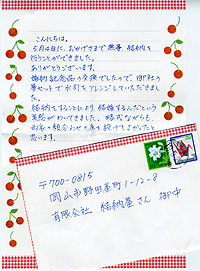 こんにちは。
5月4日に、おかげさまで無事、結納を
行うことができました。
ありがとうございます。
婚約記念品の交換でしたので、御社の
セットで水引をアレンジしていただきまし
た。
結納をすることにより、結婚するんだという
実感がわいてきました。
両家の組合わせの
思います。
〒700-0815
岡山市野田屋町1-12-8
有限会社 結納屋さん 御中